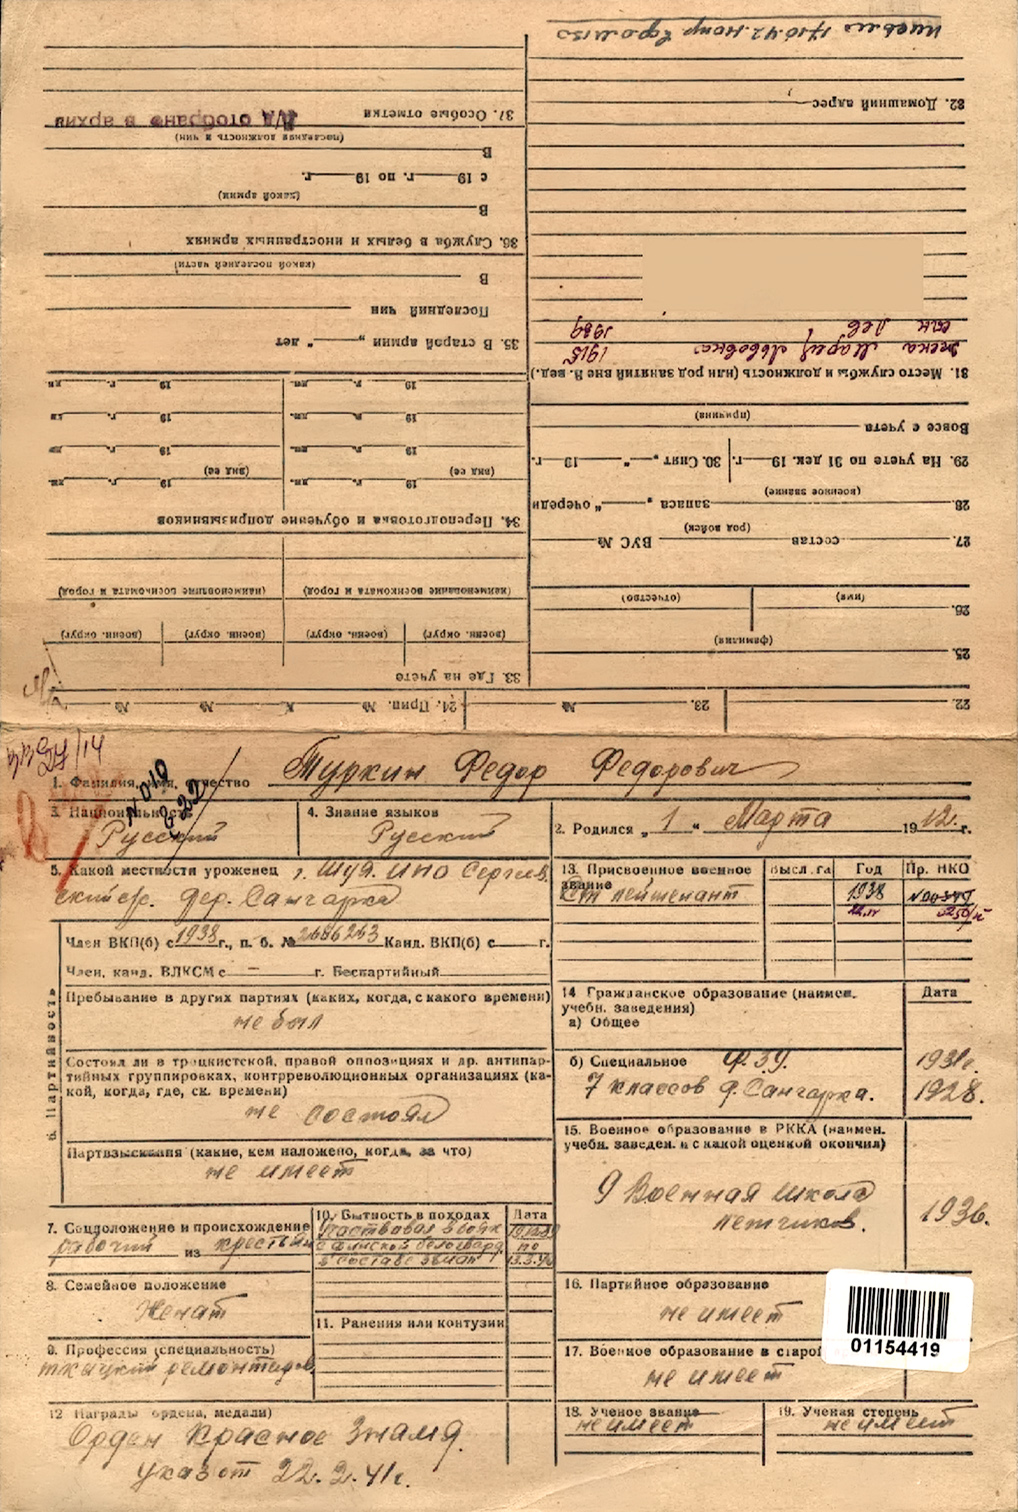 1. Фамилия, имя, отчество Туркин Федор Федорович
3. Национальность Русский
4. Знание языков Русский
2. Родился „ 1 “ Марта 1912. г.
5. Какой местности уроженец г. Шуя ИПО Сергев.
ский с/с. дер. Сангарка
13. Присвоенное военное звание
Высл. га
Год
Пр. НКО
Ст лейтенант 1938
Член ВКП(б) с 1938 г., п. б. № 2686263 Канд. ВКП(б) с г.
Член, канд. ВЛКСМ с — г. Беспартийный
6. Партийность
Пребывание в других партиях (каких, когда, с какого времени)
не был
Состоял ли в троцкистской, правой оппозициях и др. антипар-
тийных группировках, контрреволюционных организациях (ка-
кой, когда, где, ск. времени)
не состоял
Партвзыскания (какие, кем наложено, когда, за что)
не имеет
14 Гражданское образование (наимен.
учебн. заведения)
Дата
а) Общее
б) Специальное Ф.З.У. 1931г.
7 классов д. Сангарка. 1928.
15. Военное образование в РККА (наимен.
учебн. заведен. и с какой оценкой окончил)
9 Военная школа
летчиков. 1936.
7. Соцположение и происхождение
рабочий из крестьян
10. Бытность в походах
Дата
участвовал в войн
с финской белогвард.
в составе
по
13.3.40
8. Семейное положение
Женат
11. Ранения или контузии
9. Профессия (специальность)
ткацкий
16. Партийное образование
не имеет
01154419
17. Военное образование в старой
не имеет
12 Награды (ордена, медали)
Орден Красное Знамя.
Указ от 22. 2. 41г.
18. Ученое звание
не имеет
19. Ученая степень
не имеет
22.
23. №
24. Прип. № К № №
25.
(фамилия)
26.
(имя)
(отчество)
27. состав ВУС №
(род войск)
28. запаса „ “ очереди
(военное звание)
29. На учете по 31 дек. 19 г.
30. Снят „ “ 19 г.
Вовсе с учета
(причина)
31. Место службы и должность (или род занятий вне В. вед.)
жена Мария Львовна 1915
сын Лев 1939
32. Домашний адрес
33. Где на учете
(воен. округ) (воен. округ) (воен. округ) (воен. округ)
(наименование военкомата и город) (наименование военкомата и город)
34. Переподготовка и обучение допризывников
19 г. дн. 19 г. дн.
(вид ее) (вид ее)
19 г. дн. 19 г. дн.
19 г. дн. 19 г. дн.
19 г. дн. 19 г. дн.
35. В старой армии „ “ лет
Последний чин
В
(какой последней части)
36. Служба в белых и иностранных армиях
В
(какой армии)
с 19 г. по 19 г.
В
(последняя должность и чин)
37. Особые отметки Л/д отобрано в архив